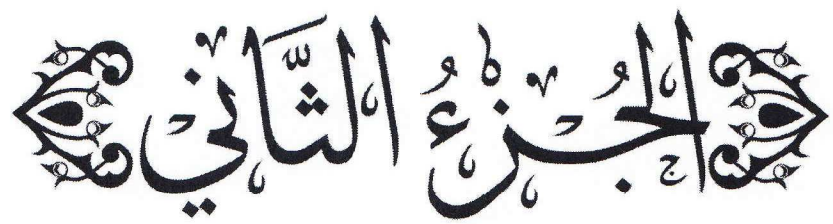 الجُزءُ الثَّاني